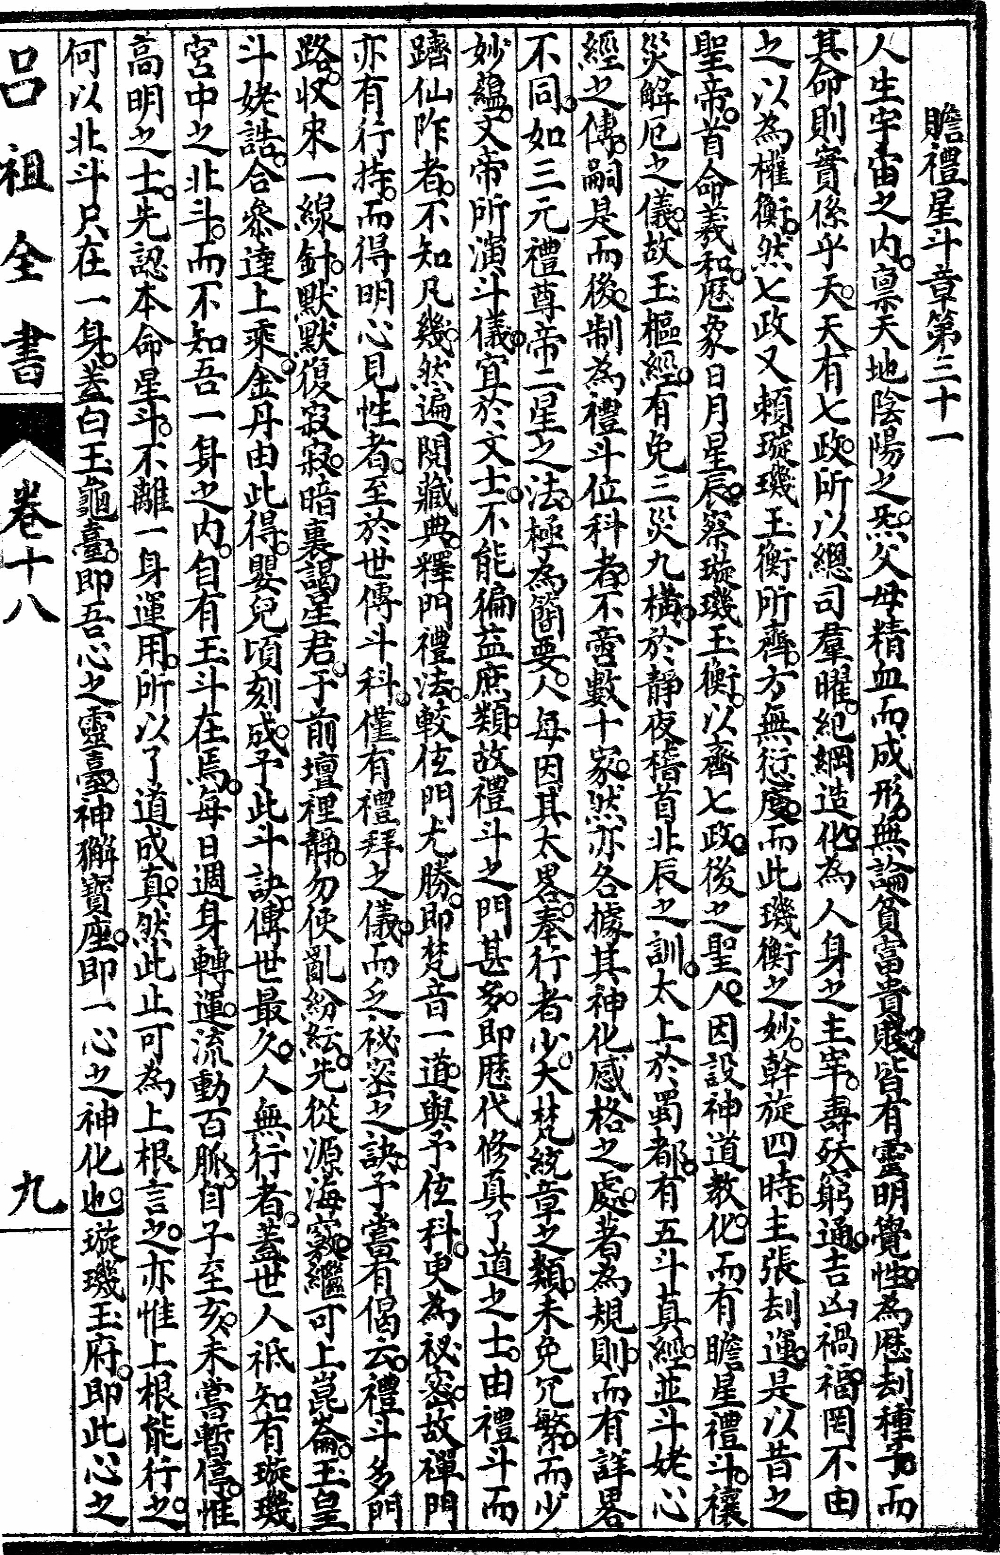 瞻禮星斗章第三十一
人生宇宙之內。稟天地陰陽之炁。父母精血而成形。無論貧富貴賤。皆有靈明覺性。為歷刦種子。而
其命則實係乎天。天有七政。所以總司羣曜。紀綱造化。為人身之主宰。壽殀窮通。吉凶禍福。罔不由
之以為權衡。然七政又賴璇璣玉衡所齊。方無衍度。而此璣衡之妙。幹旋四時。主張刦運。是以昔之
聖帝。首命羲和。歷象日月星辰。察璇璣玉衡。以齊七政。後之聖人。因設神道教化。而有瞻星禮斗。禳
災解厄之儀。故玉樞經。有免三災九橫。於靜夜稽首北辰之訓。太上於蜀都。有五斗真經。並斗姥心
經之傳。嗣是而後。制為禮斗位科者。不啻數十家。然亦各據其神化感格之處。著為規則。而有詳畧
不同。如三元禮尊帝二星之法。極為簡要。人每因其太畧。奉行者少。大梵統章之類。未免冗繁。而少
妙蘊。文帝所演斗儀。宜於文士。不能徧益庶類。故禮斗之門甚多。即歷代修真了道之士。由禮斗而
躋仙阼者。不知凡幾。然遍閱藏典。釋門禮法。較伭門尤勝。即梵音一道。與予伭科。更為祕密。故禪門
亦有行持。而得明心見性者。至於世傳斗科。僅有禮拜之儀。而乏祕密之訣。予嘗有偈云。禮斗多門
路。收來一線針。默默復寂寂。暗裏謁星君。予前壇裡靜。勿使亂紛紜。先從源海竅。繼可上崑崙。玉皇
斗姥誥。合叅達上乘。金丹由此得。嬰兒頃刻成。予此斗訣。傳世最久。人無行者。蓋世人祇知有璇璣
宮中之北斗。而不知吾一身之內。自有玉斗在焉。每日週身轉運。流動百脈。自子至亥。未嘗暫停。惟
高明之士。先認本命星斗。不離一身運用。所以了道成真。然此止可為上根言之。亦惟上根能行之。
何以北斗只在一身。蓋白玉龜臺。即吾心之靈臺。神獬寶座。即一心之神化也。璇璣玉府。即此心之
呂祖全書
卷十八
九